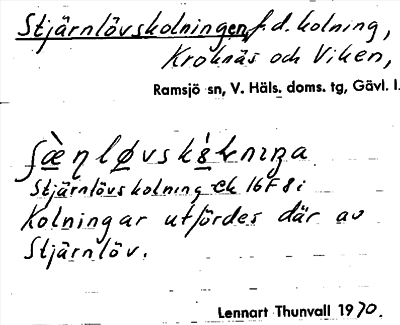 Stjärnlövskolningen, f.d. kolning,
Kroknäs och Viken,
Ramsjö sn, V. Häls. doms. tg, Gävl. l.
Stjärnlövskolning ek 16F8i
Kolningar utfördes där av
Stjärnlöv.
Lennart Thunvall 1970.